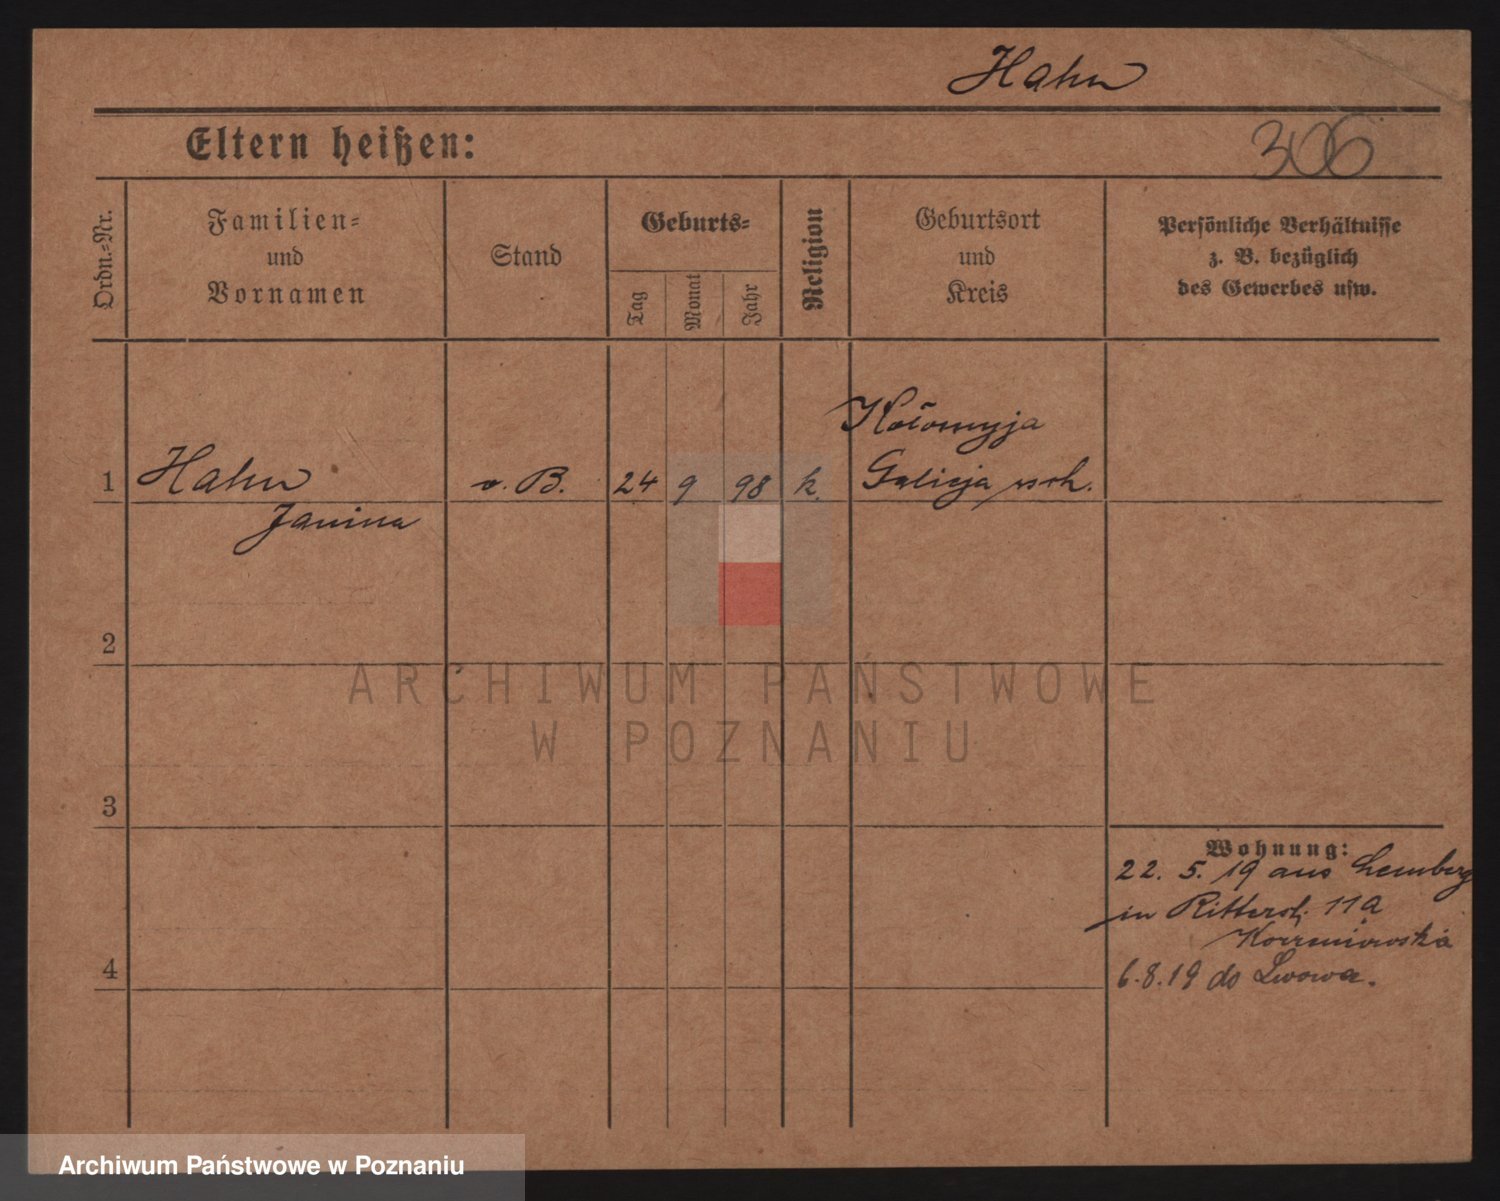 Hahn
306
Eltern heißen:
Ordn.-Nr.
Familien-
und
Vornamen
Stand
Geburts-
Tag
Monat
Jahr
Religion
Geburtsort
und
Kreis
Persönliche Verhältnisse
z. B. bezüglich
des Gewerbes usw.
1 Hahn o. B. 24 9 98 k. Kołomyja
Galicja wsch.
Janina
2
3
4
Wohnung:
22. 5. 19 aus Lemberg
in Ritterstr. 11a
Korzeniowska
6.8.19 do Lwowa.
ARCHIWUM PAŃSTWOWE
W POZNANIU
Archiwum Państwowe w Poznaniu